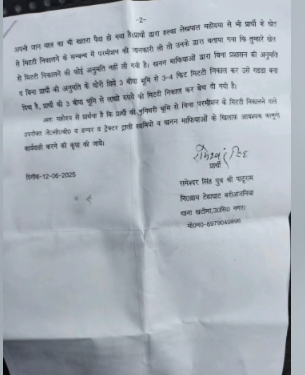 -2-
अपनी जान माल का भी खतरा पैदा हो गया है।प्रार्थी द्वारा हल्का लेखपाल महोदया से भी प्रार्थी के खेत
से मिटटी निकालने के सम्बन्ध में परमीशन की जानकारी ली तो उनके द्वारा बताया गया कि तुम्हारे खेत
से मिटटी निकालने की कोई अनुमति नहीं ली गयी है। खनन माफियाओं द्वारा बिना प्रशासन की अनुमति
व बिना प्रार्थी की अनुमति के चोरी छिपे 3 बीघा भूमि से 3-4 फिट मिटटी निकाल कर उसे गडडा बना
दिया है, प्रार्थी की 3 बीघा भूमि से लाखों रूपये की मिटटी निकालकर बेच दी गयी है।
अतः महोदय से प्रार्थना है कि प्रार्थी की भूमि से बिना परमिशन के मिटटी निकालने वाले
उपरोक्त जे०सी०बी० व डम्पर व ट्रेक्टर ट्राली स्वामियों व खनन माफियाओं के खिलाफ आवश्यक कानूनी
कार्यवाही करने की कृपा की जाये।
दिनांक-12-06-2025
प्रार्थी
रामेश्वर सिंह पुत्र श्री
नि०ग्राम
थाना खटीमा,
मो०न०-8979049896